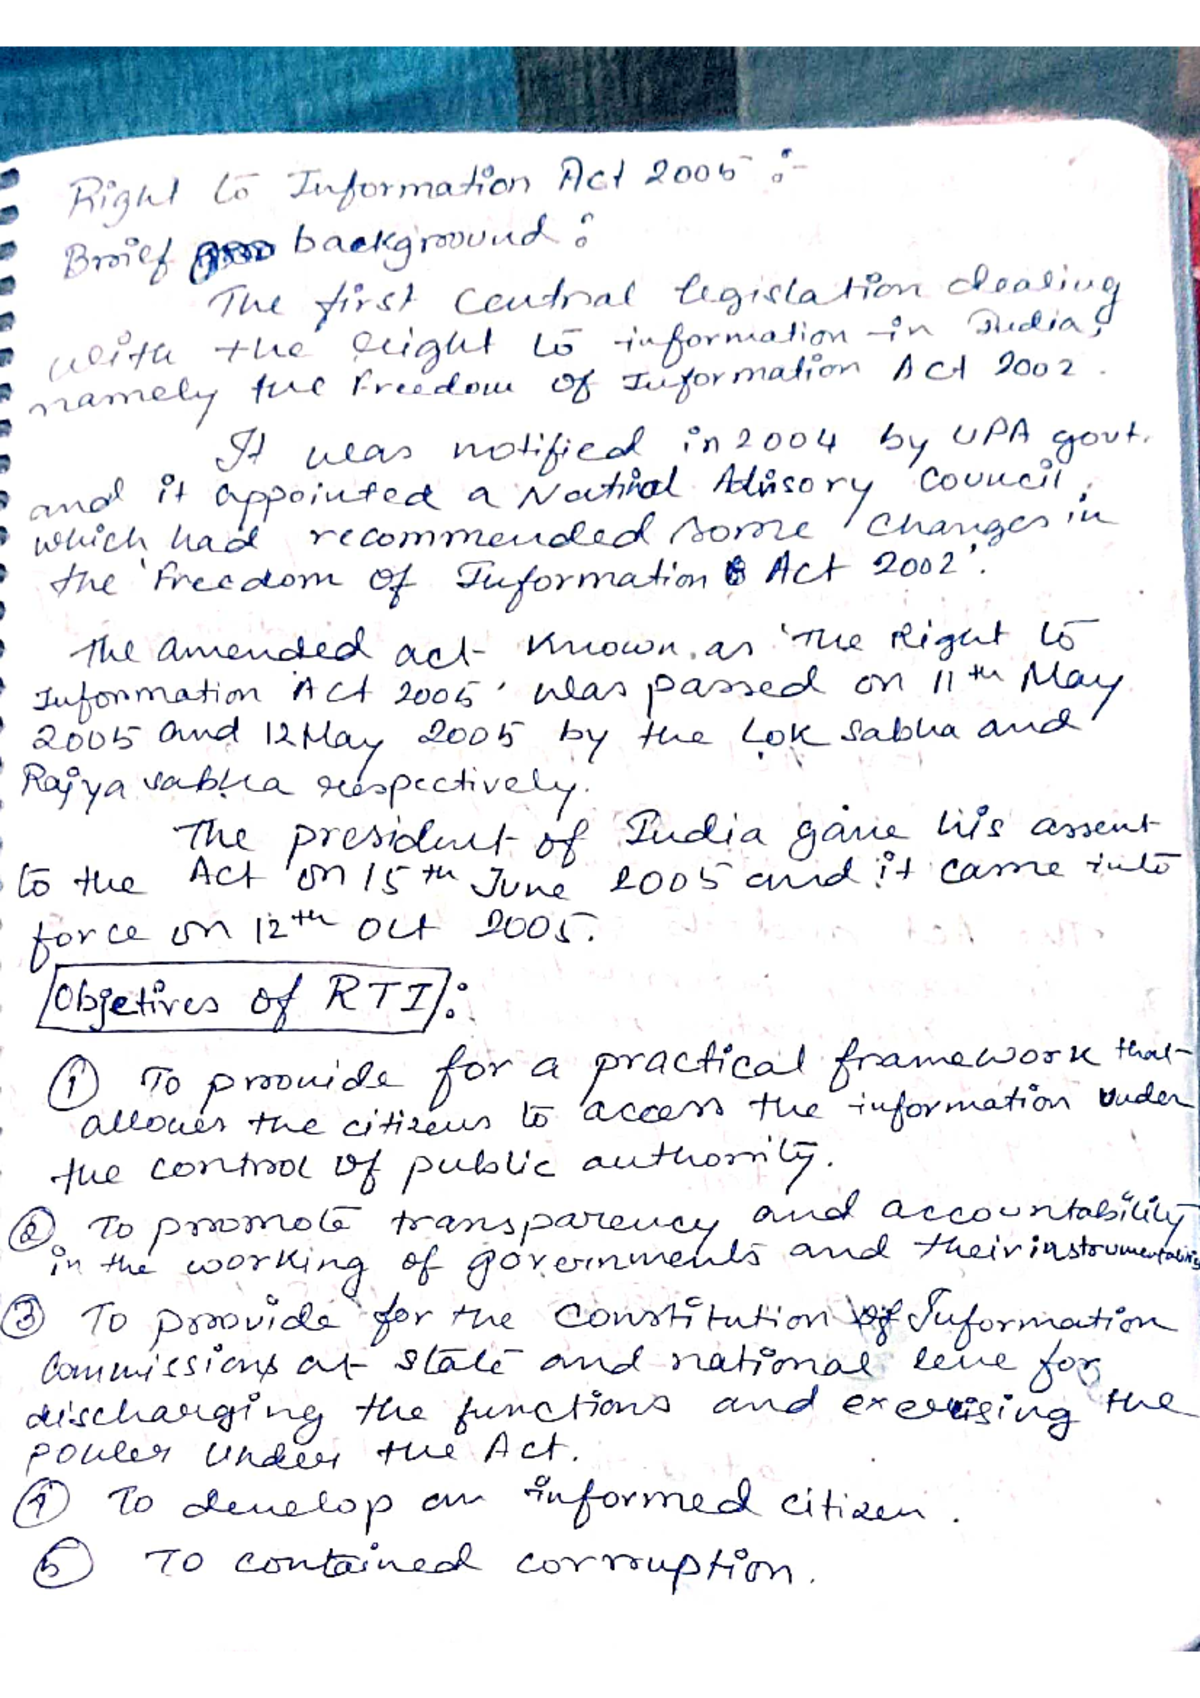 Right to Information Act 2005 :-
Brief background :
The first Central legislation dealing
with the Right to information in India,
namely the Freedom of Information Act 2002.
It was notified in 2004 by UPA govt.
and it appointed a National Advisory Council,
which had recommended some changes in
the 'Freedom of Information Act 2002'.
The amended act known as 'The Right to
Information Act 2005' was passed on 11th May
2005 and 12 May 2005 by the Lok Sabha and
Rajya Sabha respectively.
The president of India gave his assent
to the Act on 15th June 2005 and it came into
force on 12th Oct 2005.
Objetives of RTI :
① To provide for a practical framework that
allows the citizens to access the information under
the control of public authority.
② To promote transparency and accountability
in the working of governments and their instrumentalities
③ To provide for the Constitution of Information
Commissions at state and national leve for
discharging the functions and exercising the
power under the Act.
④ To develop an informed citizen.
⑤ To contained corruption.